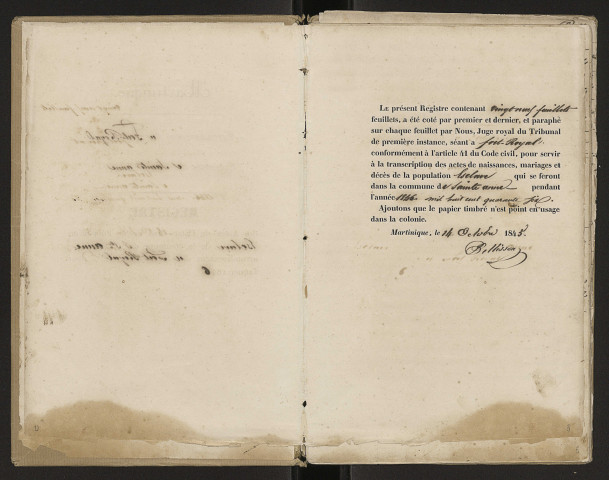 Le présent Registre contenant vingt neuf feuillets
feuillets, a été coté par premier et dernier, et paraphé
sur chaque feuillet par Nous, Juge royal du Tribunal
de première instance, séant à fort Royal
conformément à l'article 41 du Code civil, pour servir
à la transcription des actes de naissances, mariages et
décès de la population Esclave qui se feront
dans la commune de Sainte anne pendant
l'année 1846. mil huit cent quarante six.
Ajoutons que le papier timbré n'est point en usage
dans la colonie.
Martinique, le 14 Octobre 1845